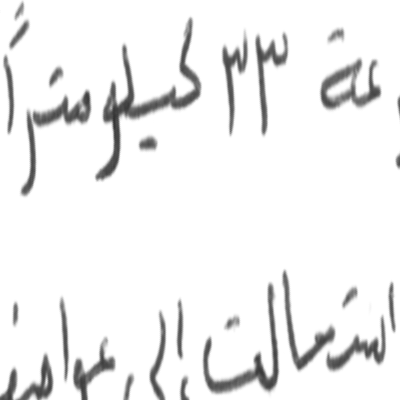 عة ٣٣ كيلومتراً
استحالت إلى عواصف